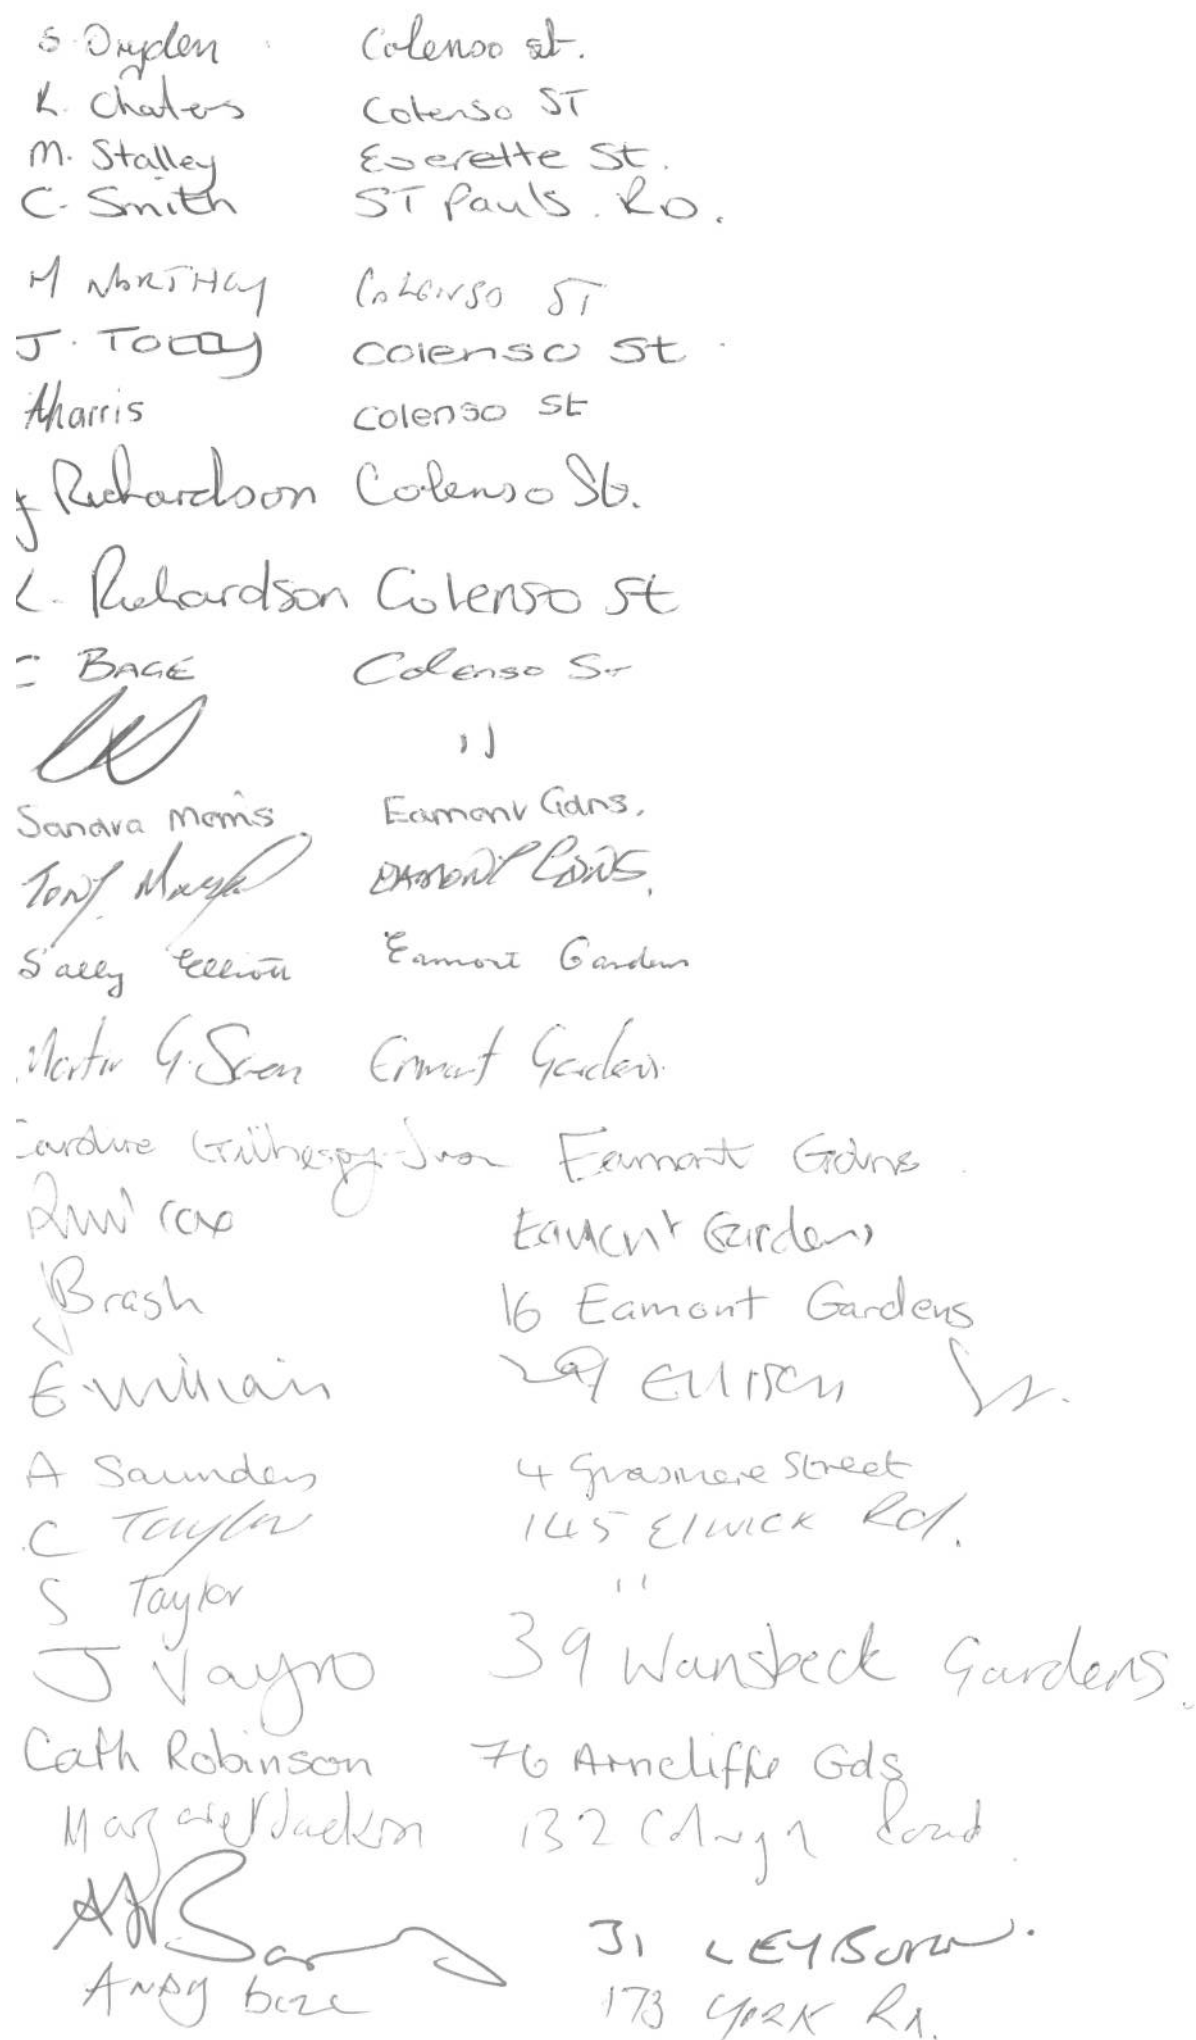 S. Dryden Colenso st.
K. Chaters Colenso ST
M. Stalley Everette St.
C. Smith ST Pauls. RD.
M Colenso ST
J. Colenso St
A harris Colenso St
J Richardson Colenso St.
L. Richardson Colenso St
C BAGE Colenso St
"
Sandra Morris Eamont Gdns.
TONY EAMONT GDNS.
Sally Elliott Eamont Gardens
Martin G. Eamont Gardens
Caroline Eamont Gdns
Cox Eamont Gardens
J Brash 16 Eamont Gardens
E William 29 Ellison St.
A Saunders 4 Grasmere Street
C Taylor 145 Elwick Rd.
S Taylor "
J Vayro 39 Wansbeck Gardens.
Cath Robinson 76 Arncliffe Gds
Margaret Jackson 132 Road
31 LEYBURN.
ANDY 173 YORK Rd.